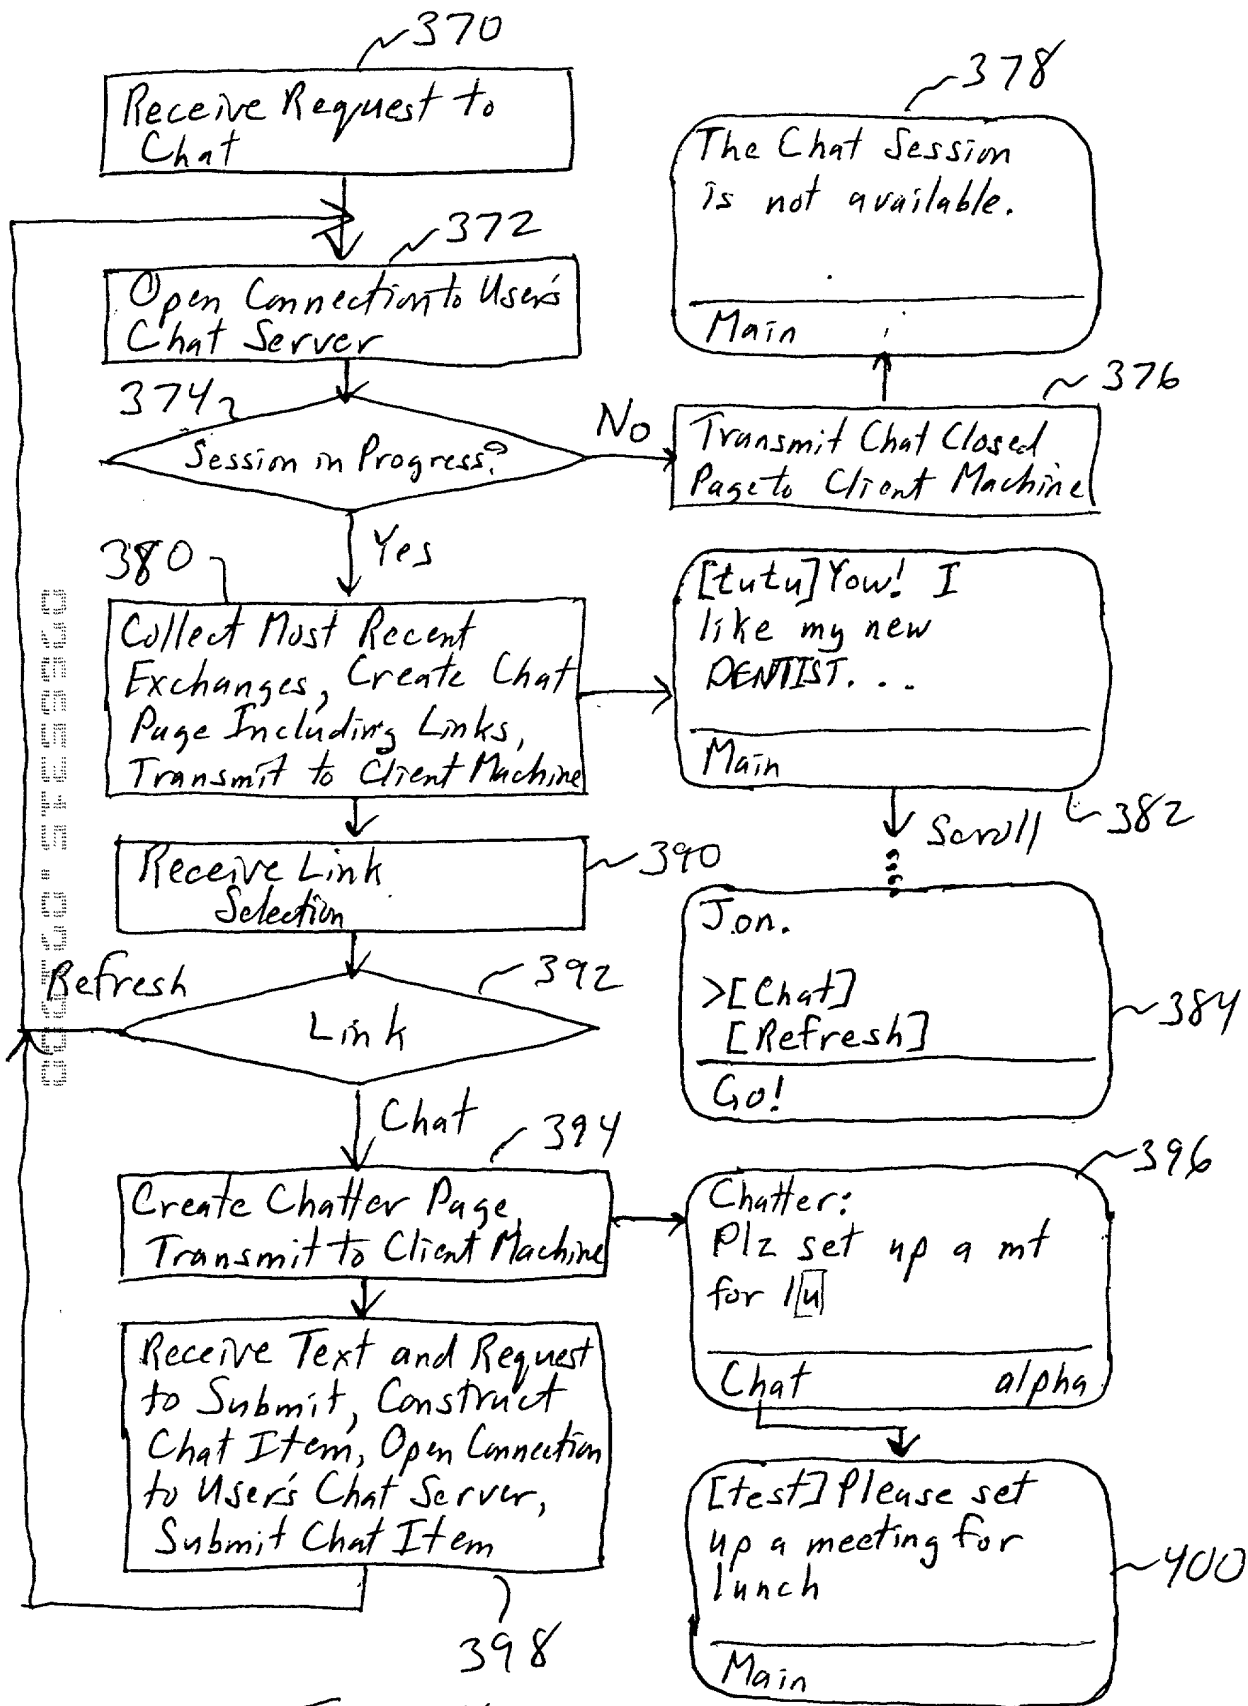 370
Receive Request to
Chat
378
The Chat Session
is not available.
Main
372
Open Connection to User's
Chat Server
374
Session in Progress?
No
376
Transmit Chat Closed
Page to Client Machine
Yes
380
Collect Most Recent
Exchanges, Create Chat
Page Including Links,
Transmit to Client Machine
[tutu] Yow! I
like my new
DENTIST...
Main
382
Scroll
Receive Link
Selection
390
Jon.
>[Chat]
[Refresh]
Go!
384
Refresh
392
Link
Chat
394
Create Chatter Page,
Transmit to Client Machine
396
Chatter:
Plz set up a mt
for lu
Chat alpha
Receive Text and Request
to Submit, Construct
Chat Item, Open Connection
to User's Chat Server,
Submit Chat Item
398
[test] Please set
up a meeting for
lunch
Main
400